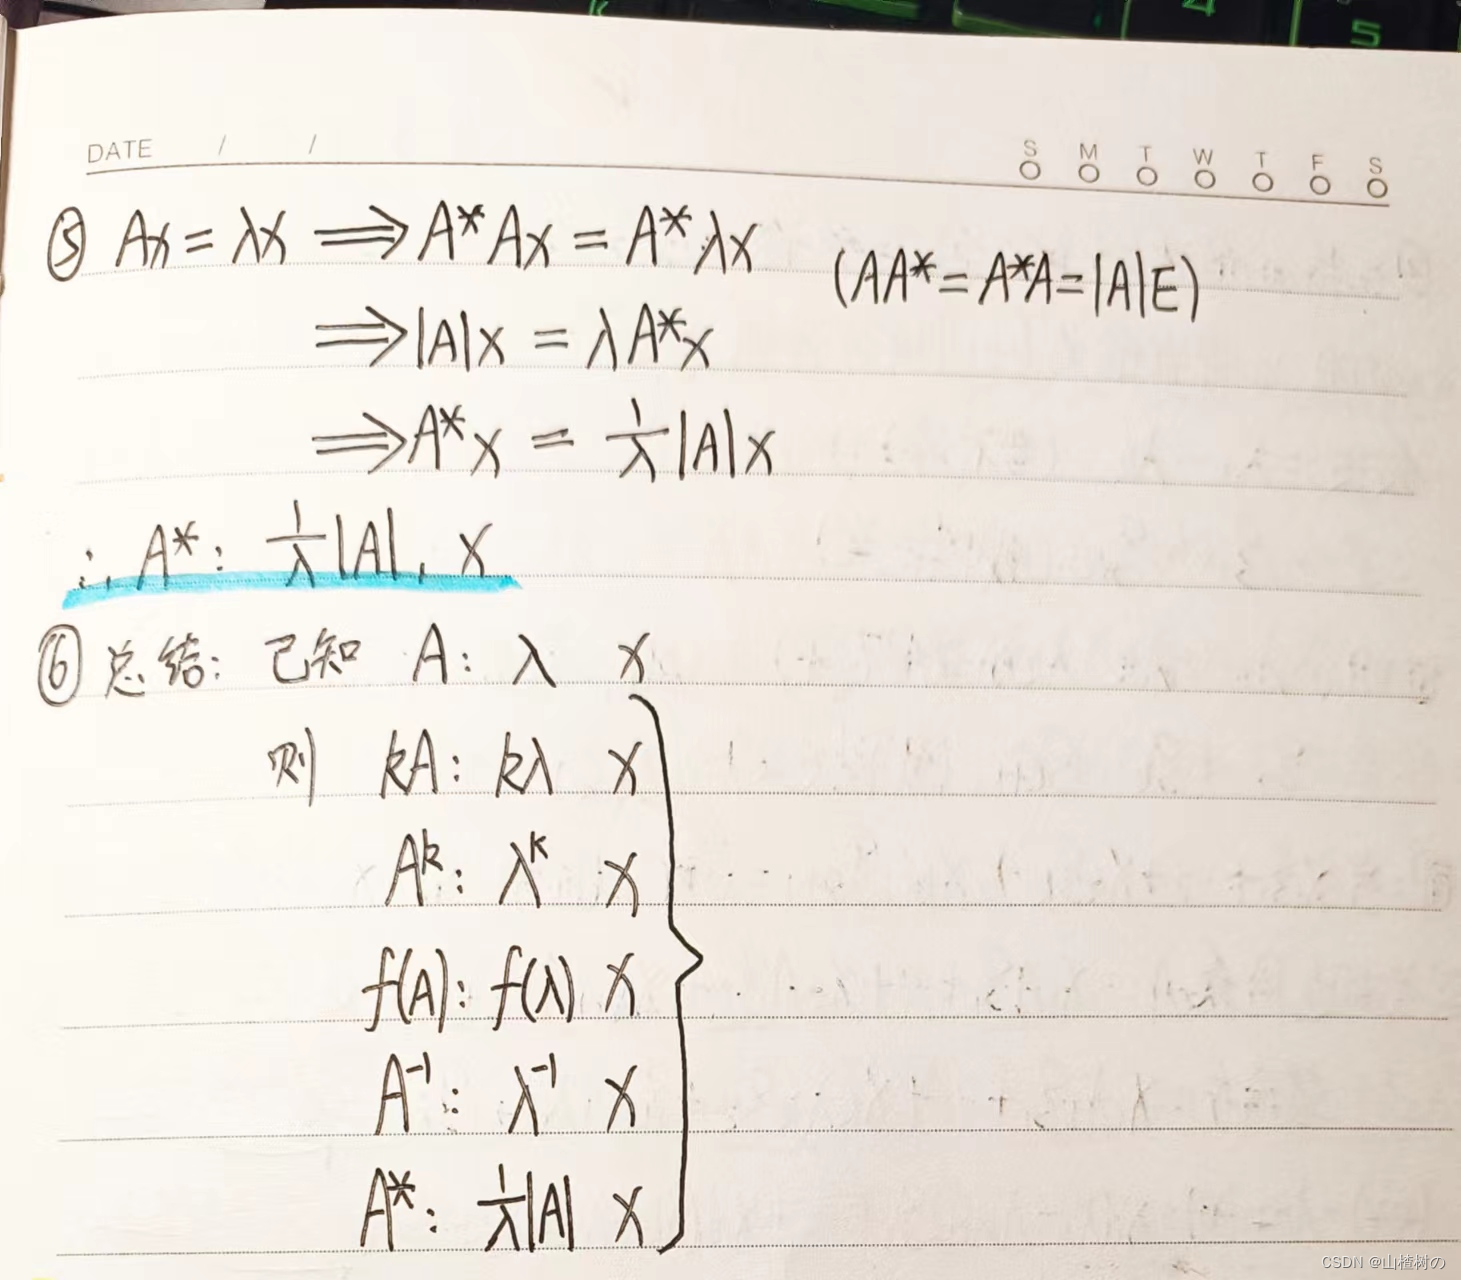 4
5
DATE / /
S M T W T F S
⑤ Ax = λx ⟹ A*Ax = A*λx (AA* = A*A = |A|E)
⟹ |A|x = λA*x
⟹ A*x = 1/λ |A|x
∴ A*: 1/λ |A|, x
⑥ 总结: 已知 A: λ x
则 kA: kλ x
Aᵏ: λᵏ x
f(A): f(λ) x
A⁻¹: λ⁻¹ x
A*: 1/λ |A| x
CSDN @山楂树の